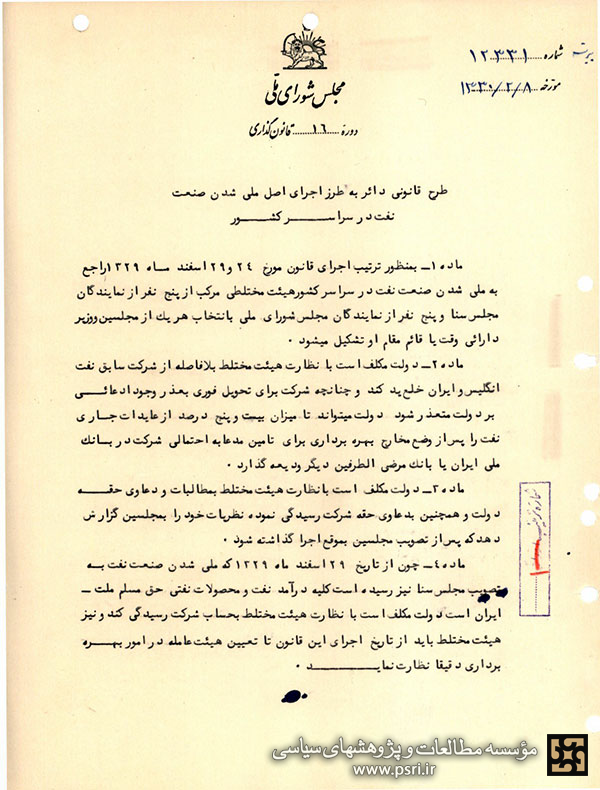 شماره ۱۲۳۳۱
مورخه ۱۳۳۰/۲/۸
مجلس شورای ملّی
دوره ۱۶ قانون‌گذاری
طرح قانونی دائر به طرز اجرای اصل ملی شدن صنعت
نفت در سراسر کشور
ماده ۱ـ بمنظور ترتیب اجرای قانون مورخ ۲۴ و ۲۹ اسفند ماه ۱۳۲۹ راجع
به ملی شدن صنعت نفت در سراسر کشور هیئت مختلطی مرکب از پنج نفر از نمایندگان
مجلس سنا و پنج نفر از نمایندگان مجلس شورای ملی بانتخاب هر یک از مجلسین و وزیر
دارائی وقت یا قائم مقام او تشکیل میشود ۰
ماده ۲ـ دولت مکلف است با نظارت هیئت مختلط بلافاصله از شرکت سابق نفت
انگلیس و ایران خلع ید کند و چنانچه شرکت برای تحویل فوری بعذر وجود ادعائی
بر دولت متعذر شود دولت میتواند تا میزان بیست و پنج درصد از عایدات جاری
نفت را پس از وضع مخارج بهره برداری برای تامین مدعابه احتمالی شرکت در بانک
ملی ایران یا بانک مرضی الطرفین دیگر ودیعه گذارد ۰
ماده ۳ـ دولت مکلف است با نظارت هیئت مختلط بمطالبات و دعاوی حقه
دولت و همچنین بدعاوی حقه شرکت رسیدگی نموده نظریات خود را بمجلسین گزارش
دهد که پس از تصویب مجلسین بموقع اجرا گذاشته شود ۰
ماده ۴ـ چون از تاریخ ۲۹ اسفند ماه ۱۳۲۹ که ملی شدن صنعت نفت به
تصویب مجلس سنا نیز رسیده است کلیه درآمد نفت و محصولات نفتی حق مسلم ملت ـ
ایران است دولت مکلف است با نظارت هیئت مختلط بحساب شرکت رسیدگی کند و نیز
هیئت مختلط باید از تاریخ اجرای این قانون تا تعیین هیئت عامله در امور بهره
برداری دقیقا نظارت نماید ۰
مؤسسه مطالعات و پژوهشهای سیاسی
www.psri.ir